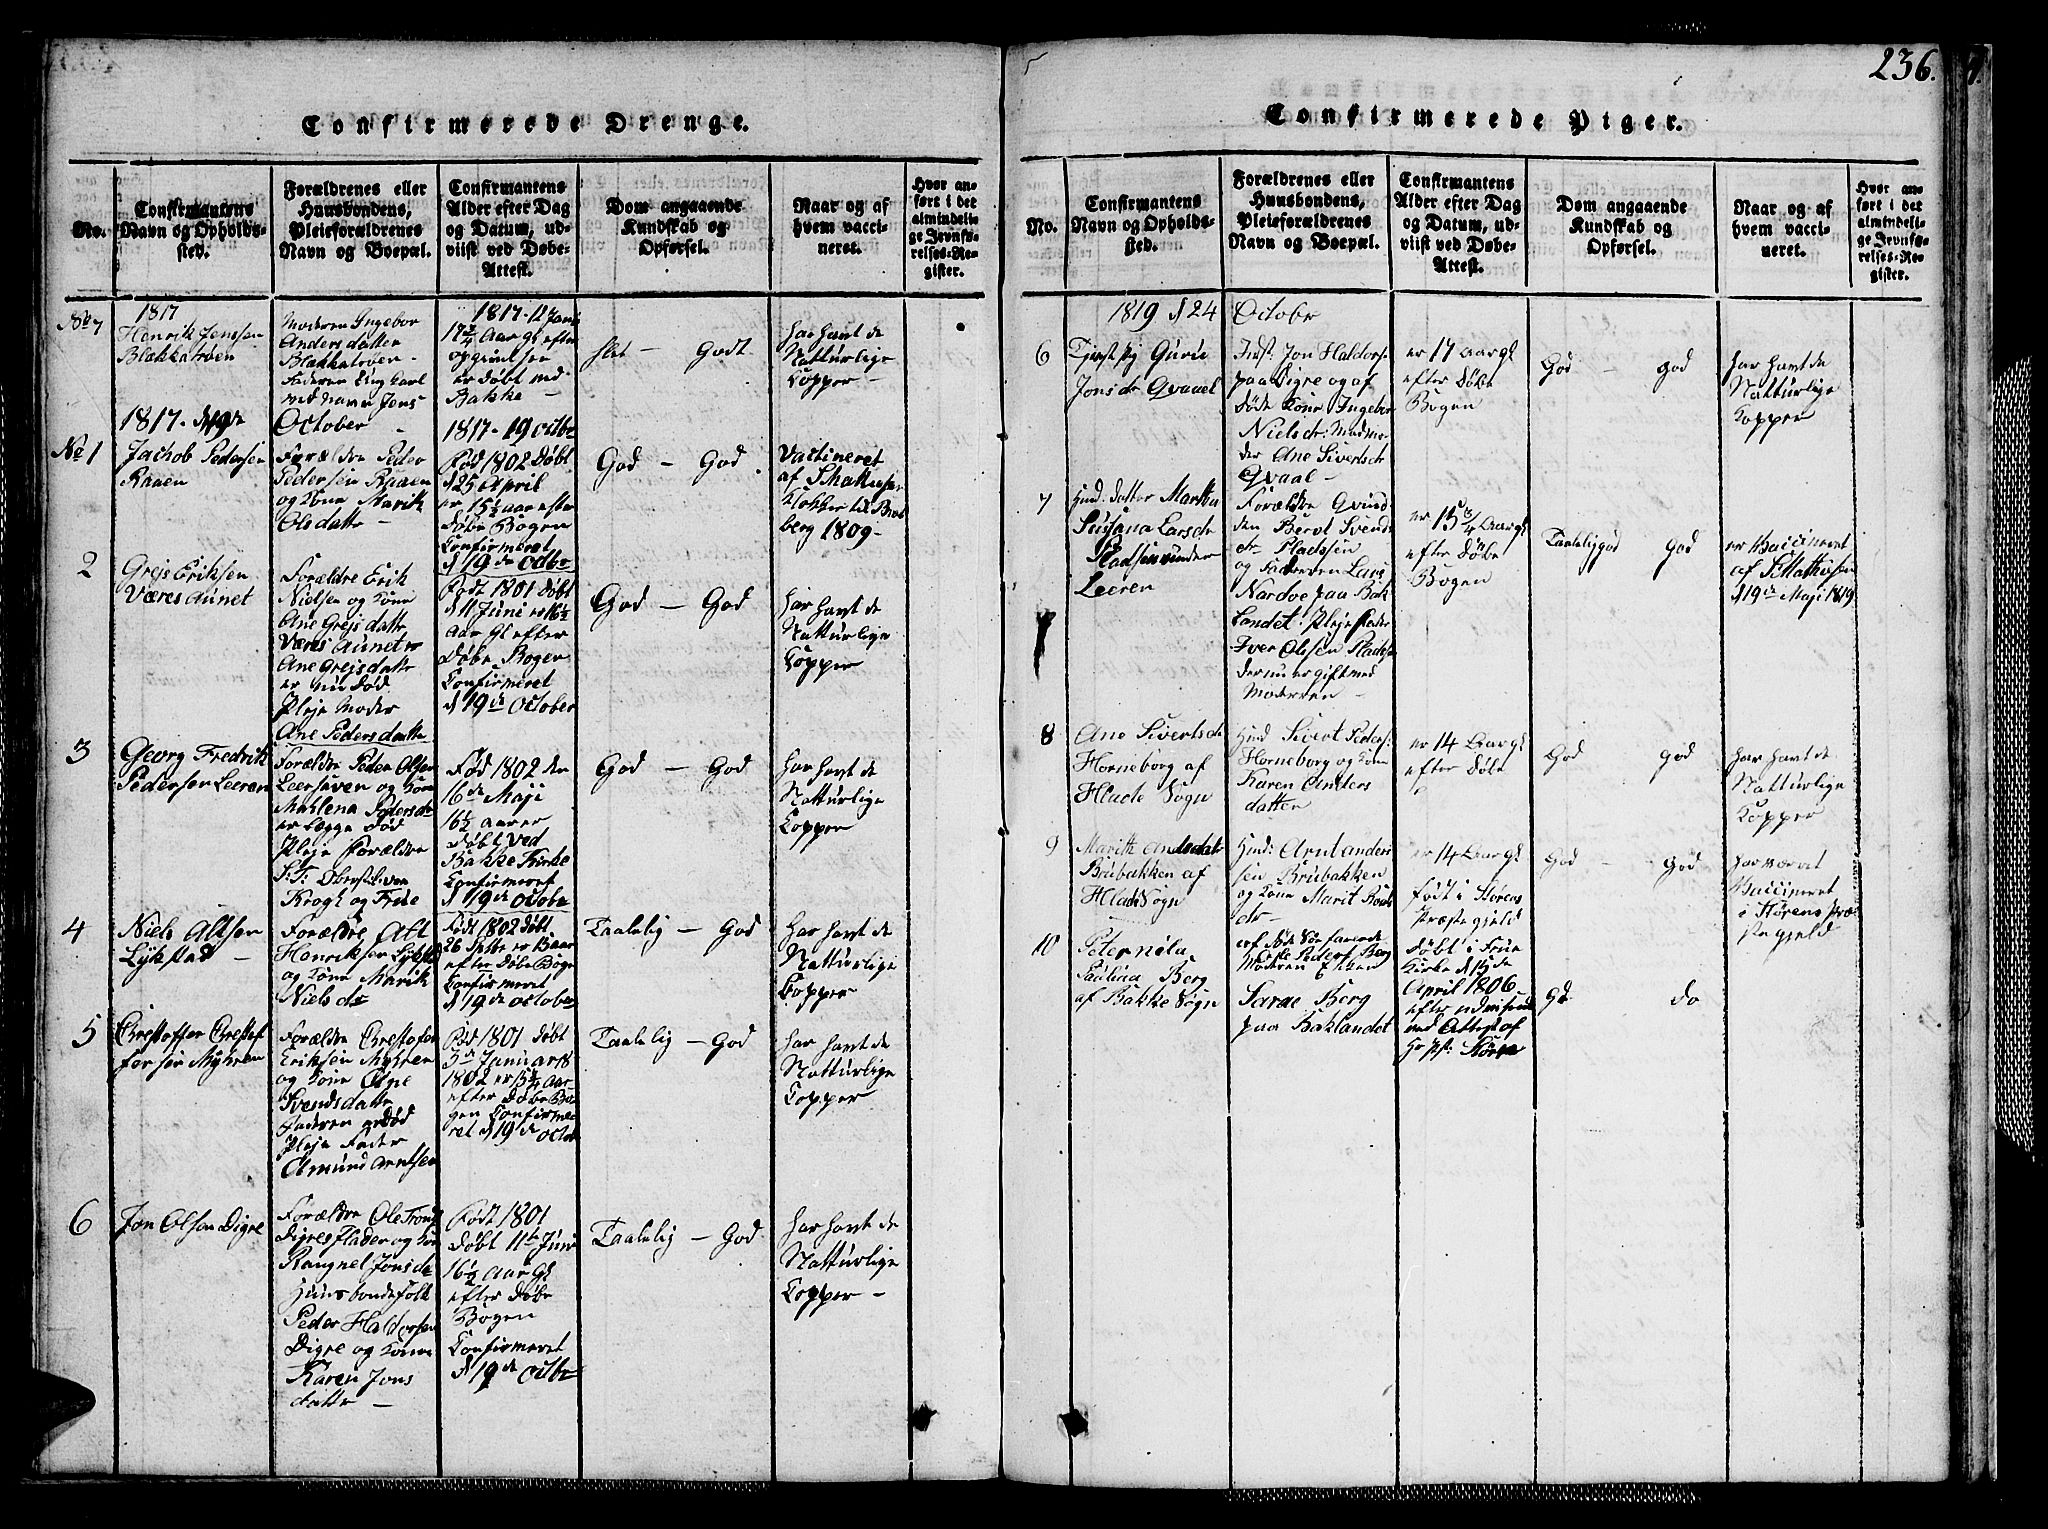 236.
Confirmerede Drenge.
No.
Confirmantens
Navn og Opholds-
sted.
Forældrenes eller
Huusbondens,
Pleieforældrenes
Navn og Boepæl.
Confirmantens
Alder efter Dag
og Datum, ud-
viist ved Døbe-
Attest.
Dom angaaende
Kundskab og
Opførsel.
Naar og af
hvem vacci-
neret.
Hvor an-
ført i det
almindeli-
ge Jevnfø-
relses-Re-
gister.
No 7
1817
Henrik Jenssen
Blækkatrøen
Moderen Ingebor
Anders datter
Blækkatrøen
Faderen Ung karl
ved Navn Jens
1817. 12 Jani
17 3/4 Aar gl efter
opgivelse
er døbt ved
Bakke -
slet - Godt
har havt de
Natturlige
Kopper -
1817. d 19de
October
1817. 19 octbr
No 1
Jachob Pedersen
Raaen
Forældre Peder
Pedersen Raaen
og Kone Marith
Olsdattr -
Fød 1802 Døbt
d 25 April
er 15 1/2 aar efter
Døbe Bogen
Confirmeret
d 19de octbr
God - God
Vactineret
af S Mathisen
Klokker til
berg 1809 -
2
Grejs Eriksen
Væres Aunet
Forældre Erik
Nielsen og Kone
Ane Grejsdattr
Værs Aunet
Ane Grejsdattr
er nu Død
Pleje Moder
Ane Pedersdattr
Født 1801 Døbt
d 11 Juni er 16 1/2
Aar Gl efter
Døbe Bogen
Confirmeret
d 19de October
God - God
har havt de
Natturlige
Kopper
3
Georg Fredrik
Pedersen Leeren
Forældre Peder Olsen
Leersiven og Kone
Mahlena Pedersdr
er begge Død
Pleje Forældre
S. T. Oberstl: von
Krogh og Frue
Fød 1802 den
16de Maji
16 1/2 aar er
døbt ved
Bakke Kirke
Confirmeret
d 19de octobr
God - God
har havt de
Natturlige
Kopper
4
Niels Altsen
Lykstad -
Forældre Alt
Henriksen Lykstd
og Kone Marith
Nielsdr
Født 1802 døbt
26 Septbr er 15 aar
efter Døbe Bogn
Confirmeret
d 19de octobr
Taalelig - God
har havt de
Natturlige
Kopper
5
Christoffer Christof
forsen Myhren
Forældre Christofer
Eriksen Myhren
og Kone Olne
Svendsdattr
Faderen er død
Pleje Fader
Amund Arntsen
Fød 1801 døbt
5de Januari
1802 er 15 3/4 Aar
efter Døbe Bo
gen Confirme
ret d 19de octob
Taalelig - God
har havt de
Natturlige
Kopper
6
Jon Olsen Digre
Forældre Ole Trond
Digres Flader og Kone
Rangnel Jonsdr
Huusbondefolk
Peder Haldorsen
Digre og Kone
Karen Jons
dattr -
Født 1801
Døbt 11te Juni
16 1/2 Aar Gl
efter Døbe
Bogen
Confirmeret
d 19de octbr
Taalelig - God
har havt de
Natturlige
Kopper -
Confirmerede Piger.
No.
Confirmantens
Navn og Opholds-
sted.
Forældrenes eller
Huusbondens,
Pleieforældrenes
Navn og Boepæl.
Confirmantens
Alder efter Dag
og Datum, ud-
viist ved Døbe-
Attest.
Dom angaaende
Kundskab og
Opførsel.
Naar og af
hvem vacci-
neret.
Hvor an-
ført i det
almindeli-
ge Jevnfø-
relses-Re-
gister.
1819 d 24 October
6
Tjenst pig Guru
Jonsdr Qvaael
Inst: Jon Haldors:
paa Digre og af
døde Kone Ingebor
Nielsdr: Madmo
der Ane Sivertsdr
Qvaal -
er 17 Aar gl
efter Døbe
Bogen
God - God
har havt de
Natturlige
Kopper
7
Huusd: datter Martha
Susana Larsdr
Pladsen under
Leeren
Forældre Qvind
den Berot Svends
dr - Pladssen
og Faderen Lars
Nardoe paa Bak
landet. Pleje Fader
Iver Olssen Pladsen
der nu er gift med
Moderen -
er 15 3/4 Aar gl
efter Døbe
Bogen
Taalelig god God
er Vaccineret
af S Mathisen
d 19de Maji 1819
8
Ane Sivertsdr
Horneborg af
Hlade Sogn
Huusd Sivert Peders:
Horneborg og Kone
Karen Anders
datter
er 14 Aar gl
efter Døbe
God God
har havt de
Natturlige
Kopper
9
Marith Arndsdatr
Brubakken af
Hlade Sogn
Huusd: Arnt Anders
sen Brubakken
og Kone Marit
dr -
er 14 Aar gl
født i Størens
Præstegjeld
God - God
har været
Vaccineret
i Størens Præ
stegjeld
10
Peternela
Paulina Berg
af Bakke Sogn
af døde
Peders: Berg
Moderen Enken
Sarae Berg
paa Baklandet
Døbt i Frue
Kirke d 15de
April 1806
efter
ved Attest af
Hr pst: Stören
Gd do